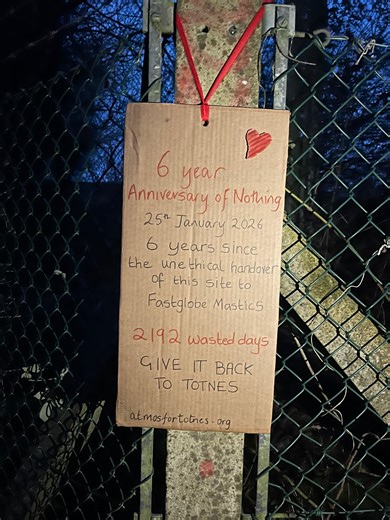 6 year
Anniversary of Nothing
25th January 2026
6 years since
the unethical handover
of this site to
Fastglobe Mastics
2192 wasted days
GIVE IT BACK
TO TOTNES
atmosfortotnes.org